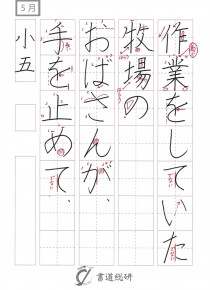 5月
作業をしていた
牧場の
おばさんが、
手を止めて、
小五
書道総研